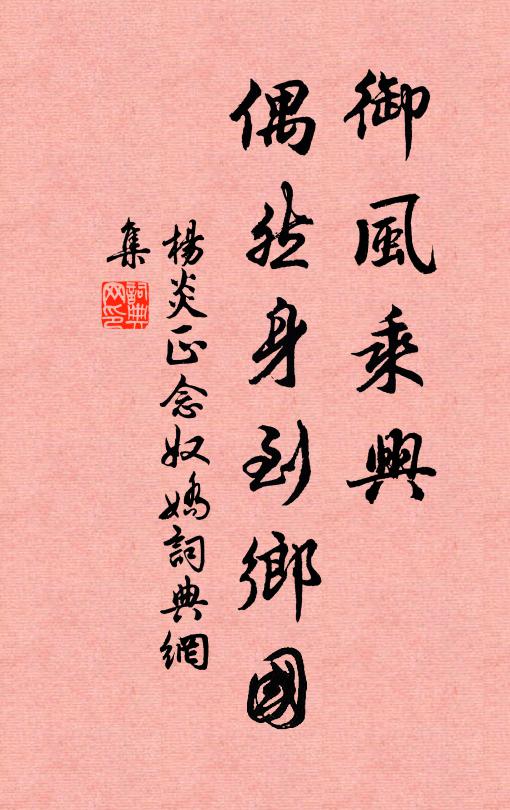 御風乘興
偶然身到鄉國
楊炎正念奴嬌詞典網
集
詞典
网印